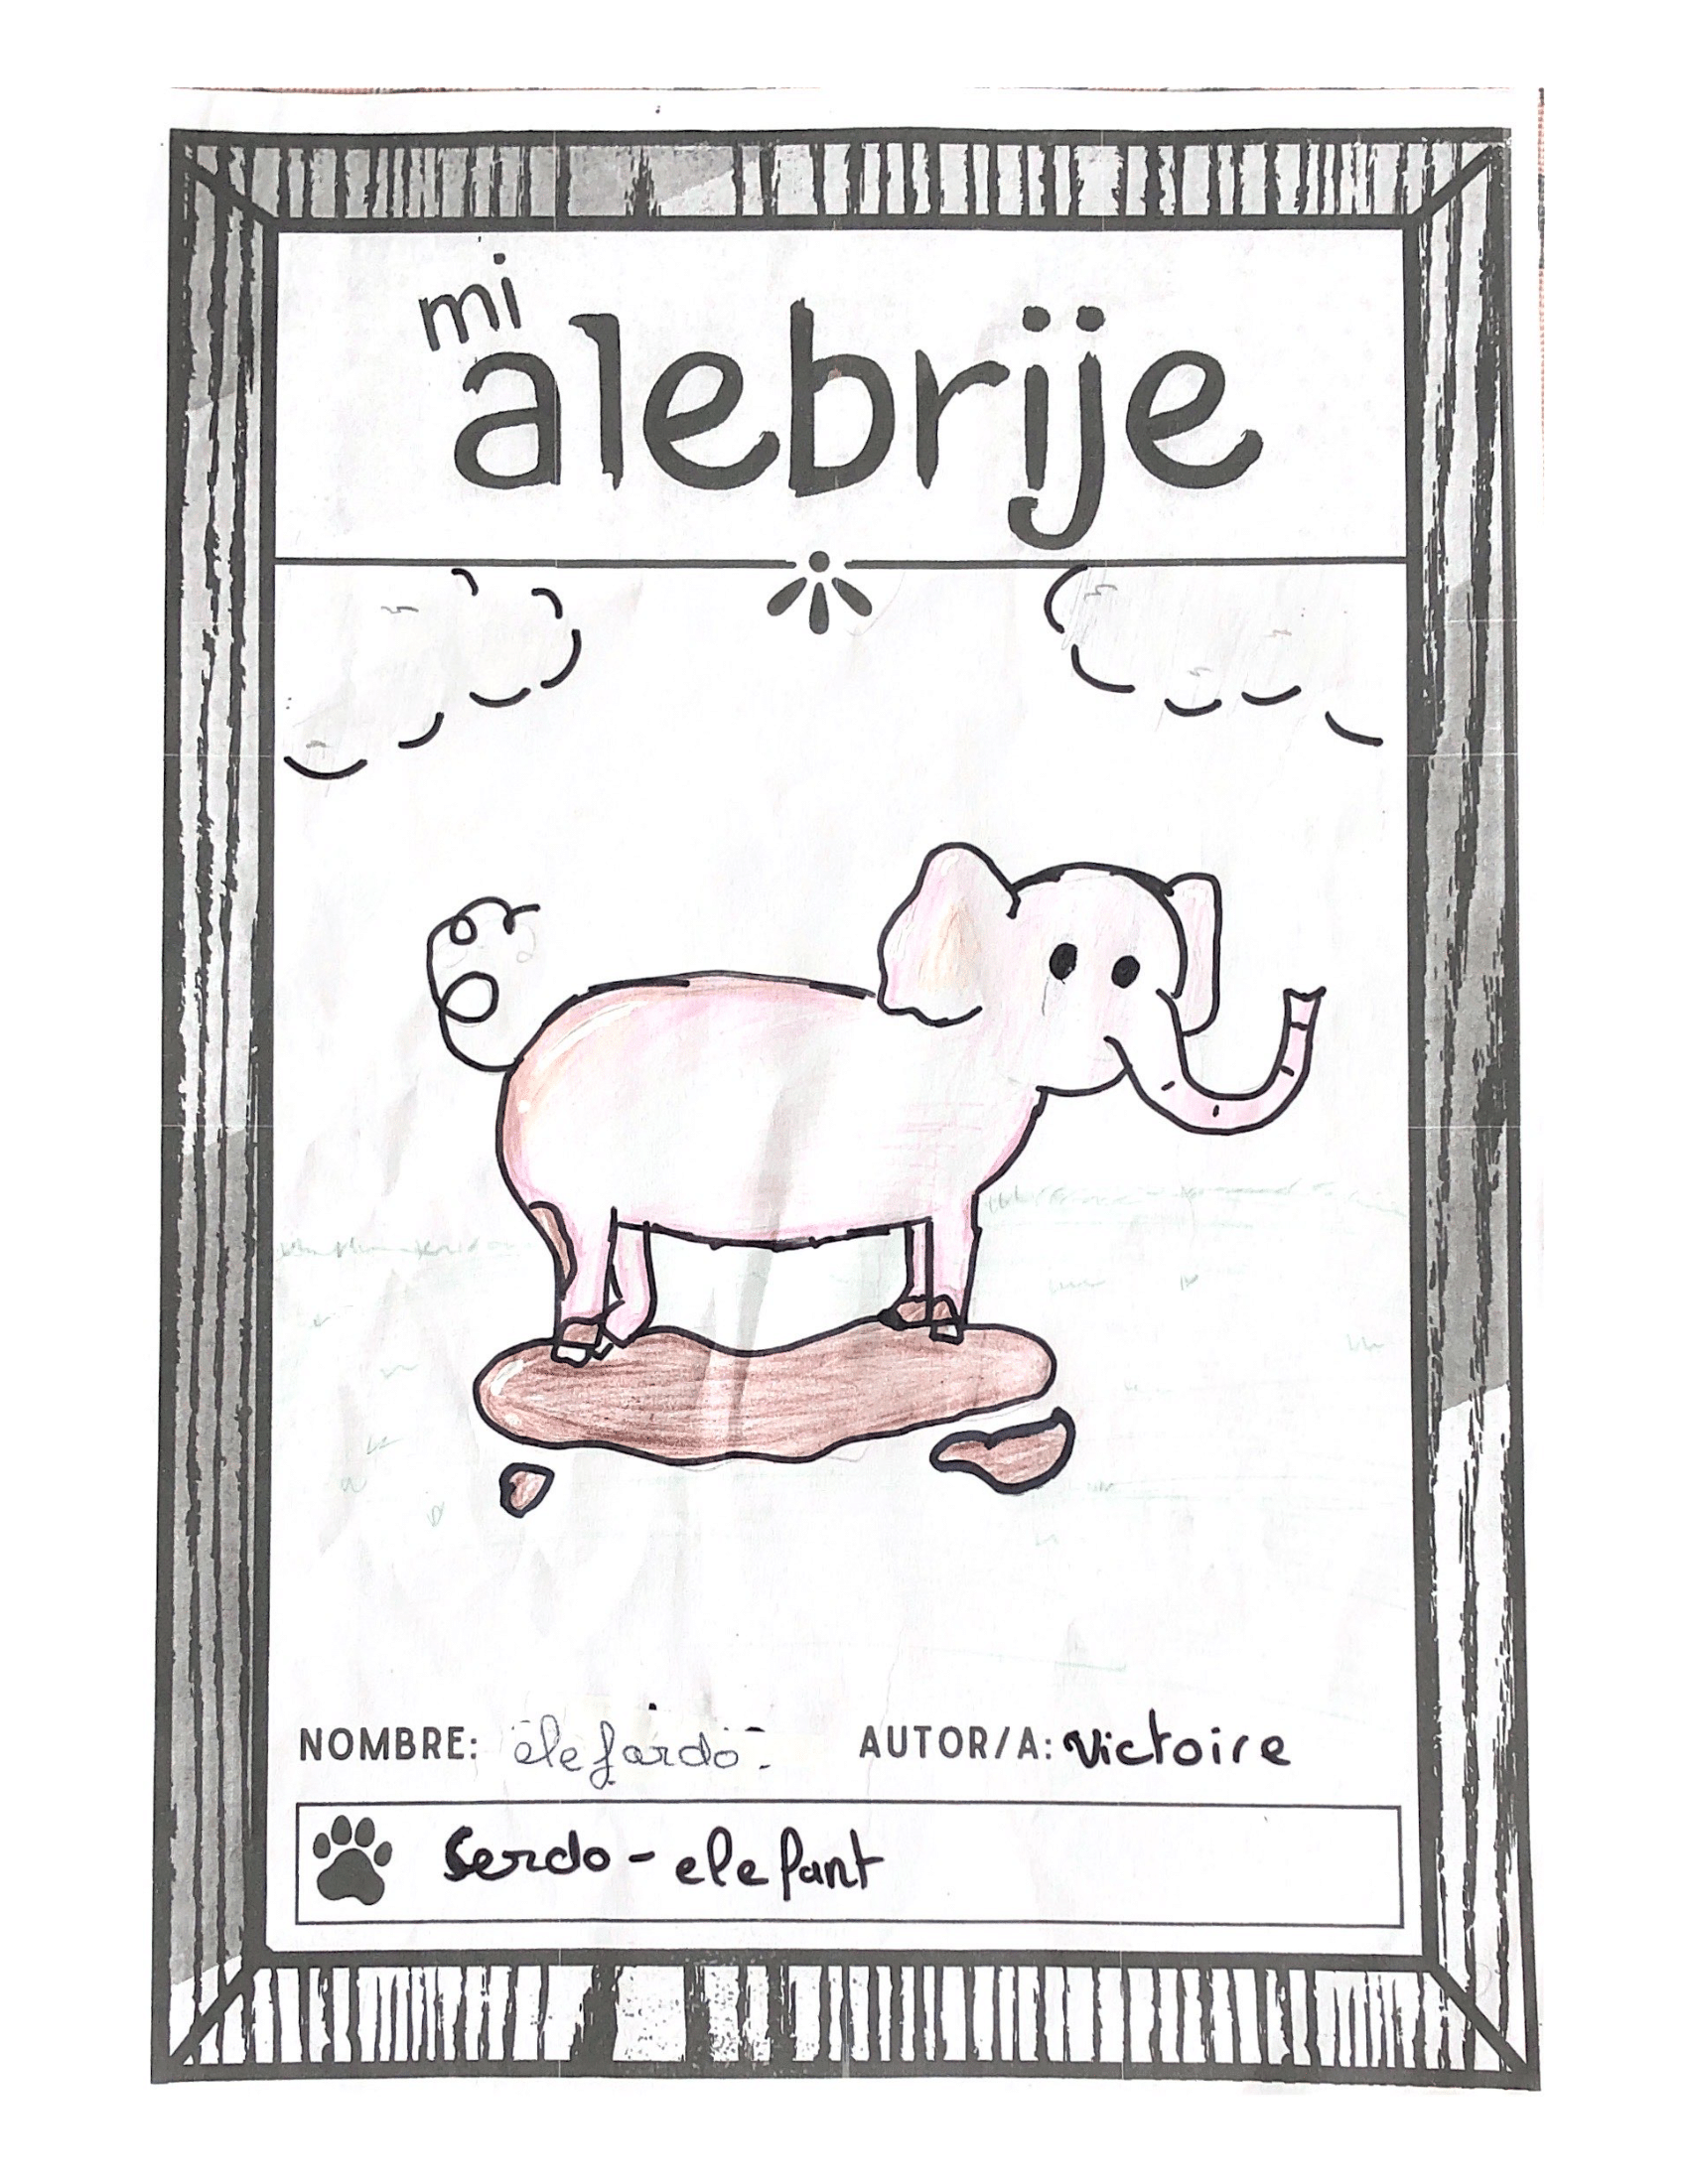 mi
alebrije
NOMBRE: elefardo. AUTOR/A: Victoire
Serdo - elefant